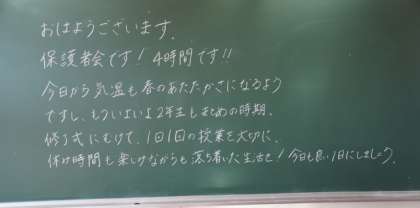 おはようございます.
保護者会です！4時間です!!
今日から気温も春のあたたかさになるよう
ですし、もういよいよ2年生もまとめの時期.
修了式にむけて、1日1回の授業を大切に、
休け時間も楽しけながらも落ち着いた生活を！今日も良い1日にしましょう。